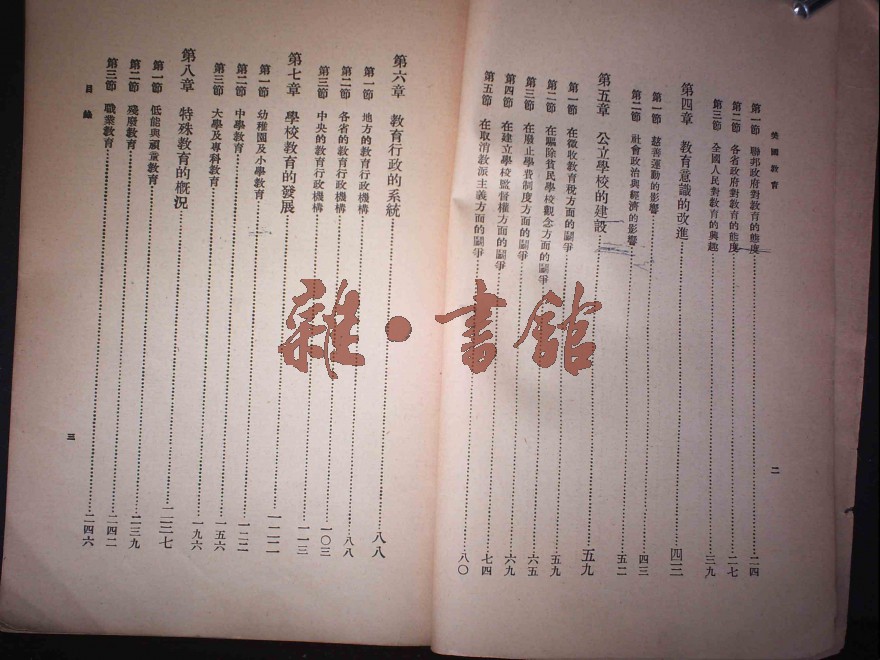 美國教育
第一節 聯邦政府對教育的態度……二四
第二節 各省政府對教育的態度……二七
第三節 全國人民對教育的興趣……三九
第四章 教育意識的改進……四三
第一節 慈善運動的影響……四三
第二節 社會政治與經濟的影響……五二
第五章 公立學校的建設……五九
第一節 在徵收教育稅方面的鬭爭……五九
第二節 在驅除貧民學校觀念方面的鬭爭……六五
第三節 在廢止學費制度方面的鬭爭……六九
第四節 在建立學校監督權方面的鬭爭……七四
第五節 在取消教派主義方面的鬭爭……八〇
二
第六章 教育行政的系統……八八
第一節 地方的教育行政機構……八八
第二節 各省的教育行政機構……一〇三
第三節 中央的教育行政機構……一一三
第七章 學校教育的發展……一二二
第一節 幼稚園及小學教育……一二二
第二節 中學教育……一五六
第三節 大學及專科教育……一九六
第八章 特殊教育的概況……二三七
第一節 低能與頑童教育……二三九
第二節 殘廢教育……二四二
第三節 職業教育……二四六
目錄
三
雜·書館